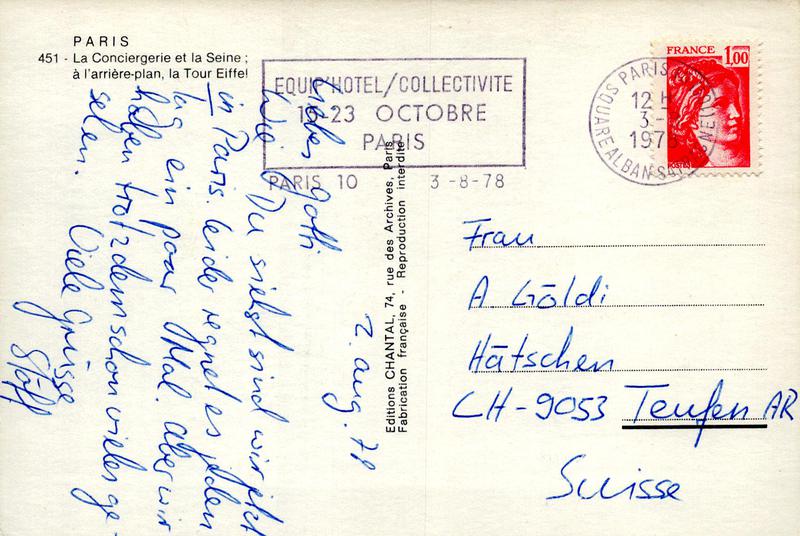 PARIS
451 - La Conciergerie et la Seine ;
à l'arrière-plan, la Tour Eiffel
EQUIP'HOTEL/COLLECTIVITE
15-23 OCTOBRE
PARIS
PARIS 10 3-8-78
PARIS
12 H
3-
1978
SQUARE ALBAN SATRAGNE
FRANCE 1,00
Editions CHANTAL, 74, rue des Archives, Paris
Fabrication française - Reproduction interdite
2. Aug. 78
Liebes Gotti
Wie Du siehst sind wir jetzt
in Paris. Leider regnet es jeden
Tag ein paar Mal. Aber wir
haben trotzdem schon vieles ge-
sehen.
Viele Grüsse
Stöff
Frau
A Göldi
Hätschen
CH-9053 Teufen AR
Suisse